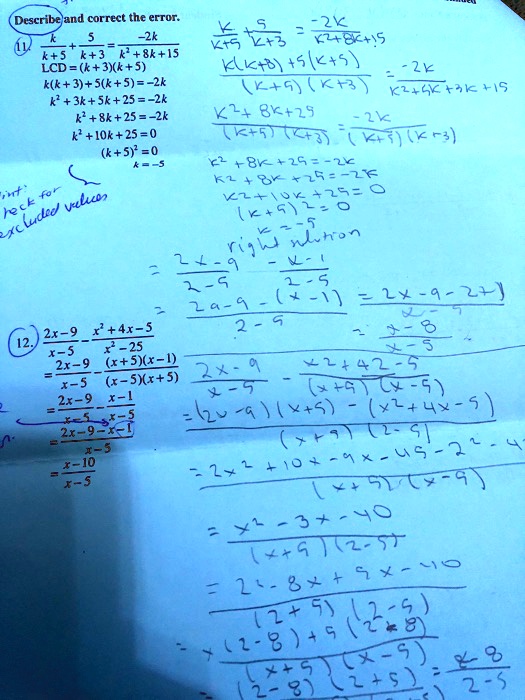 Describe and correct the error.
11. k/(k+5) + 5/(k+3) = -2k/(k²+8k+15)
LCD = (k+3)(k+5)
k(k+3)+5(k+5) = -2k
k²+3k+5k+25 = -2k
k²+8k+25 = -2k
k²+10k+25 = 0
(k+5)² = 0
k = -5
check for
excluded values
k/(k+5) + 5/(k+3) = -2k/(k²+8k+15)
k(k+3)+5(k+5)/(k+5)(k+3) = -2k/(k²+5k+3k+15)
k²+8k+25/(k+5)(k+3) = -2k/(k+5)(k+3)
k²+8k+25 = -2k
k²+8k+25 = -2k
k²+10k+25 = 0
(k+5)² = 0
k = -5
right solution
= (2x-9)/(x-5) - (x-1)/(x-5)
= (2x-9-(x-1))/(x-5) = (2x-9-x+1)/(x-5)
= (x-8)/(x-5)
12. (2x-9)/(x-5) - (x²+4x-5)/(x²-25)
= (2x-9)/(x-5) - (x+5)(x-1)/(x-5)(x+5)
= (2x-9)/(x-5) - (x-1)/(x-5)
= (2x-9-x-1)/(x-5)
= (x-10)/(x-5)
(2x-9)/(x-5) - (x²+4x-5)/(x+5)(x-5)
= (2x-9)(x+5)-(x²+4x-5)/(x+5)(x-5)
= 2x²+10x-9x-45-x²-4
/(x+5)(x-5)
= x²-3x-40/(x+5)(x-5)
= x²-8x+5x-40/(x+5)(x-5)
= x(x-8)+5(x-8)/(x+5)(x-5)
= (x-8)(x+5) = (x-8)/(x-5)